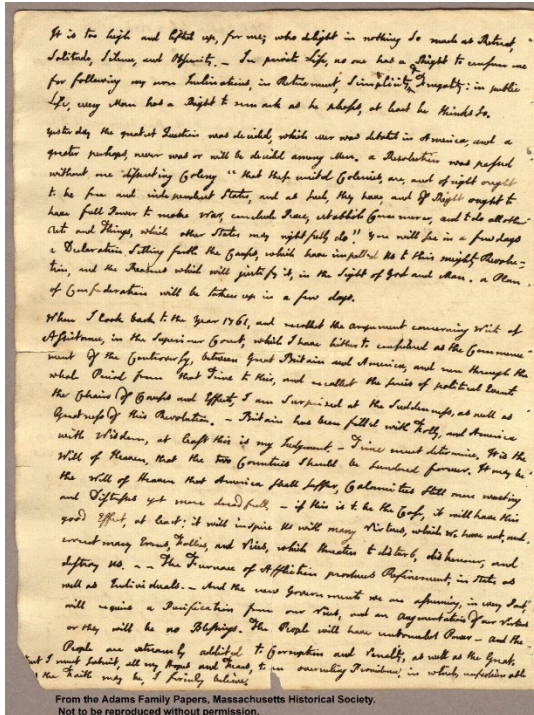 It is too high and lifted up, for me; who delight in nothing so much as Retreat,
Solitude, Silence, and Obscurity. — In private Life, no one has a Right to censure me
for following my own Inclinations, in Retirement, Simplicity, & Frugality: in public
Life, every Man has a Right to remark as he pleases, at least he thinks so.
Yesterday the greatest Question was decided, which ever was debated in America, and a
greater perhaps, never was or will be decided among Men. a Resolution was passed
without one dissenting Colony "that these united Colonies, are, and of right ought
to be free and independent States, and as such, they have, and of Right ought to
have full Power to make War, conclude Peace, establish Commerce, and to do all other
Acts and Things, which other States may rightfully do." you will see in a few days
a Declaration setting forth the Causes, which have impelled Us to this mighty Revolu-
tion, and the Reasons which will justify it, in the Sight of God and Man. a Plan
of Confederation will be taken up in a few days.
When I look back to the Year 1761, and recollect the Argument concerning Writs of
Assistance, in the Superiour Court, which I have hitherto considered as the Commence-
ment of the Controversy, between Great Britain and America, and run through the
whole Period from that Time to this, and recollect the series of political Events
the Chain of Causes and Effects, I am surprized at the Suddenness, as well as
Greatness of this Revolution. — Britain has been fill'd with Folly, and America
with Wisdom, at least this is my Judgment. — Time must determine. It is the
Will of Heaven, that the two Countries should be sundered forever. It may be
the Will of Heaven that America shall suffer Calamities still more wasting
and Distresses yet more dreadfull. — if this is to be the Case, it will have this
good Effect, at least: it will inspire Us with many Virtues, which We have not, and
correct many Errors, Follies, and Vices, which threaten to disturb, dishonour, and
destroy Us. — — The Furnace of Affliction produces Refinement, in States as
well as Individuals. — And the new Governments we are assuming, in every Part,
will require a Purification from our Vices, and an Augmentation of our Virtues
or they will be no Blessings. The People will have unbounded Power — and the
People are extreamly addicted to Corruption and Venality, as well as the Great,
But I must submit, all my Hopes and Fears, to an overruling Providence, in which, unfashionable
as the Faith may be, I firmly believe.
From the Adams Family Papers, Massachusetts Historical Society.
Not to be reproduced without permission.